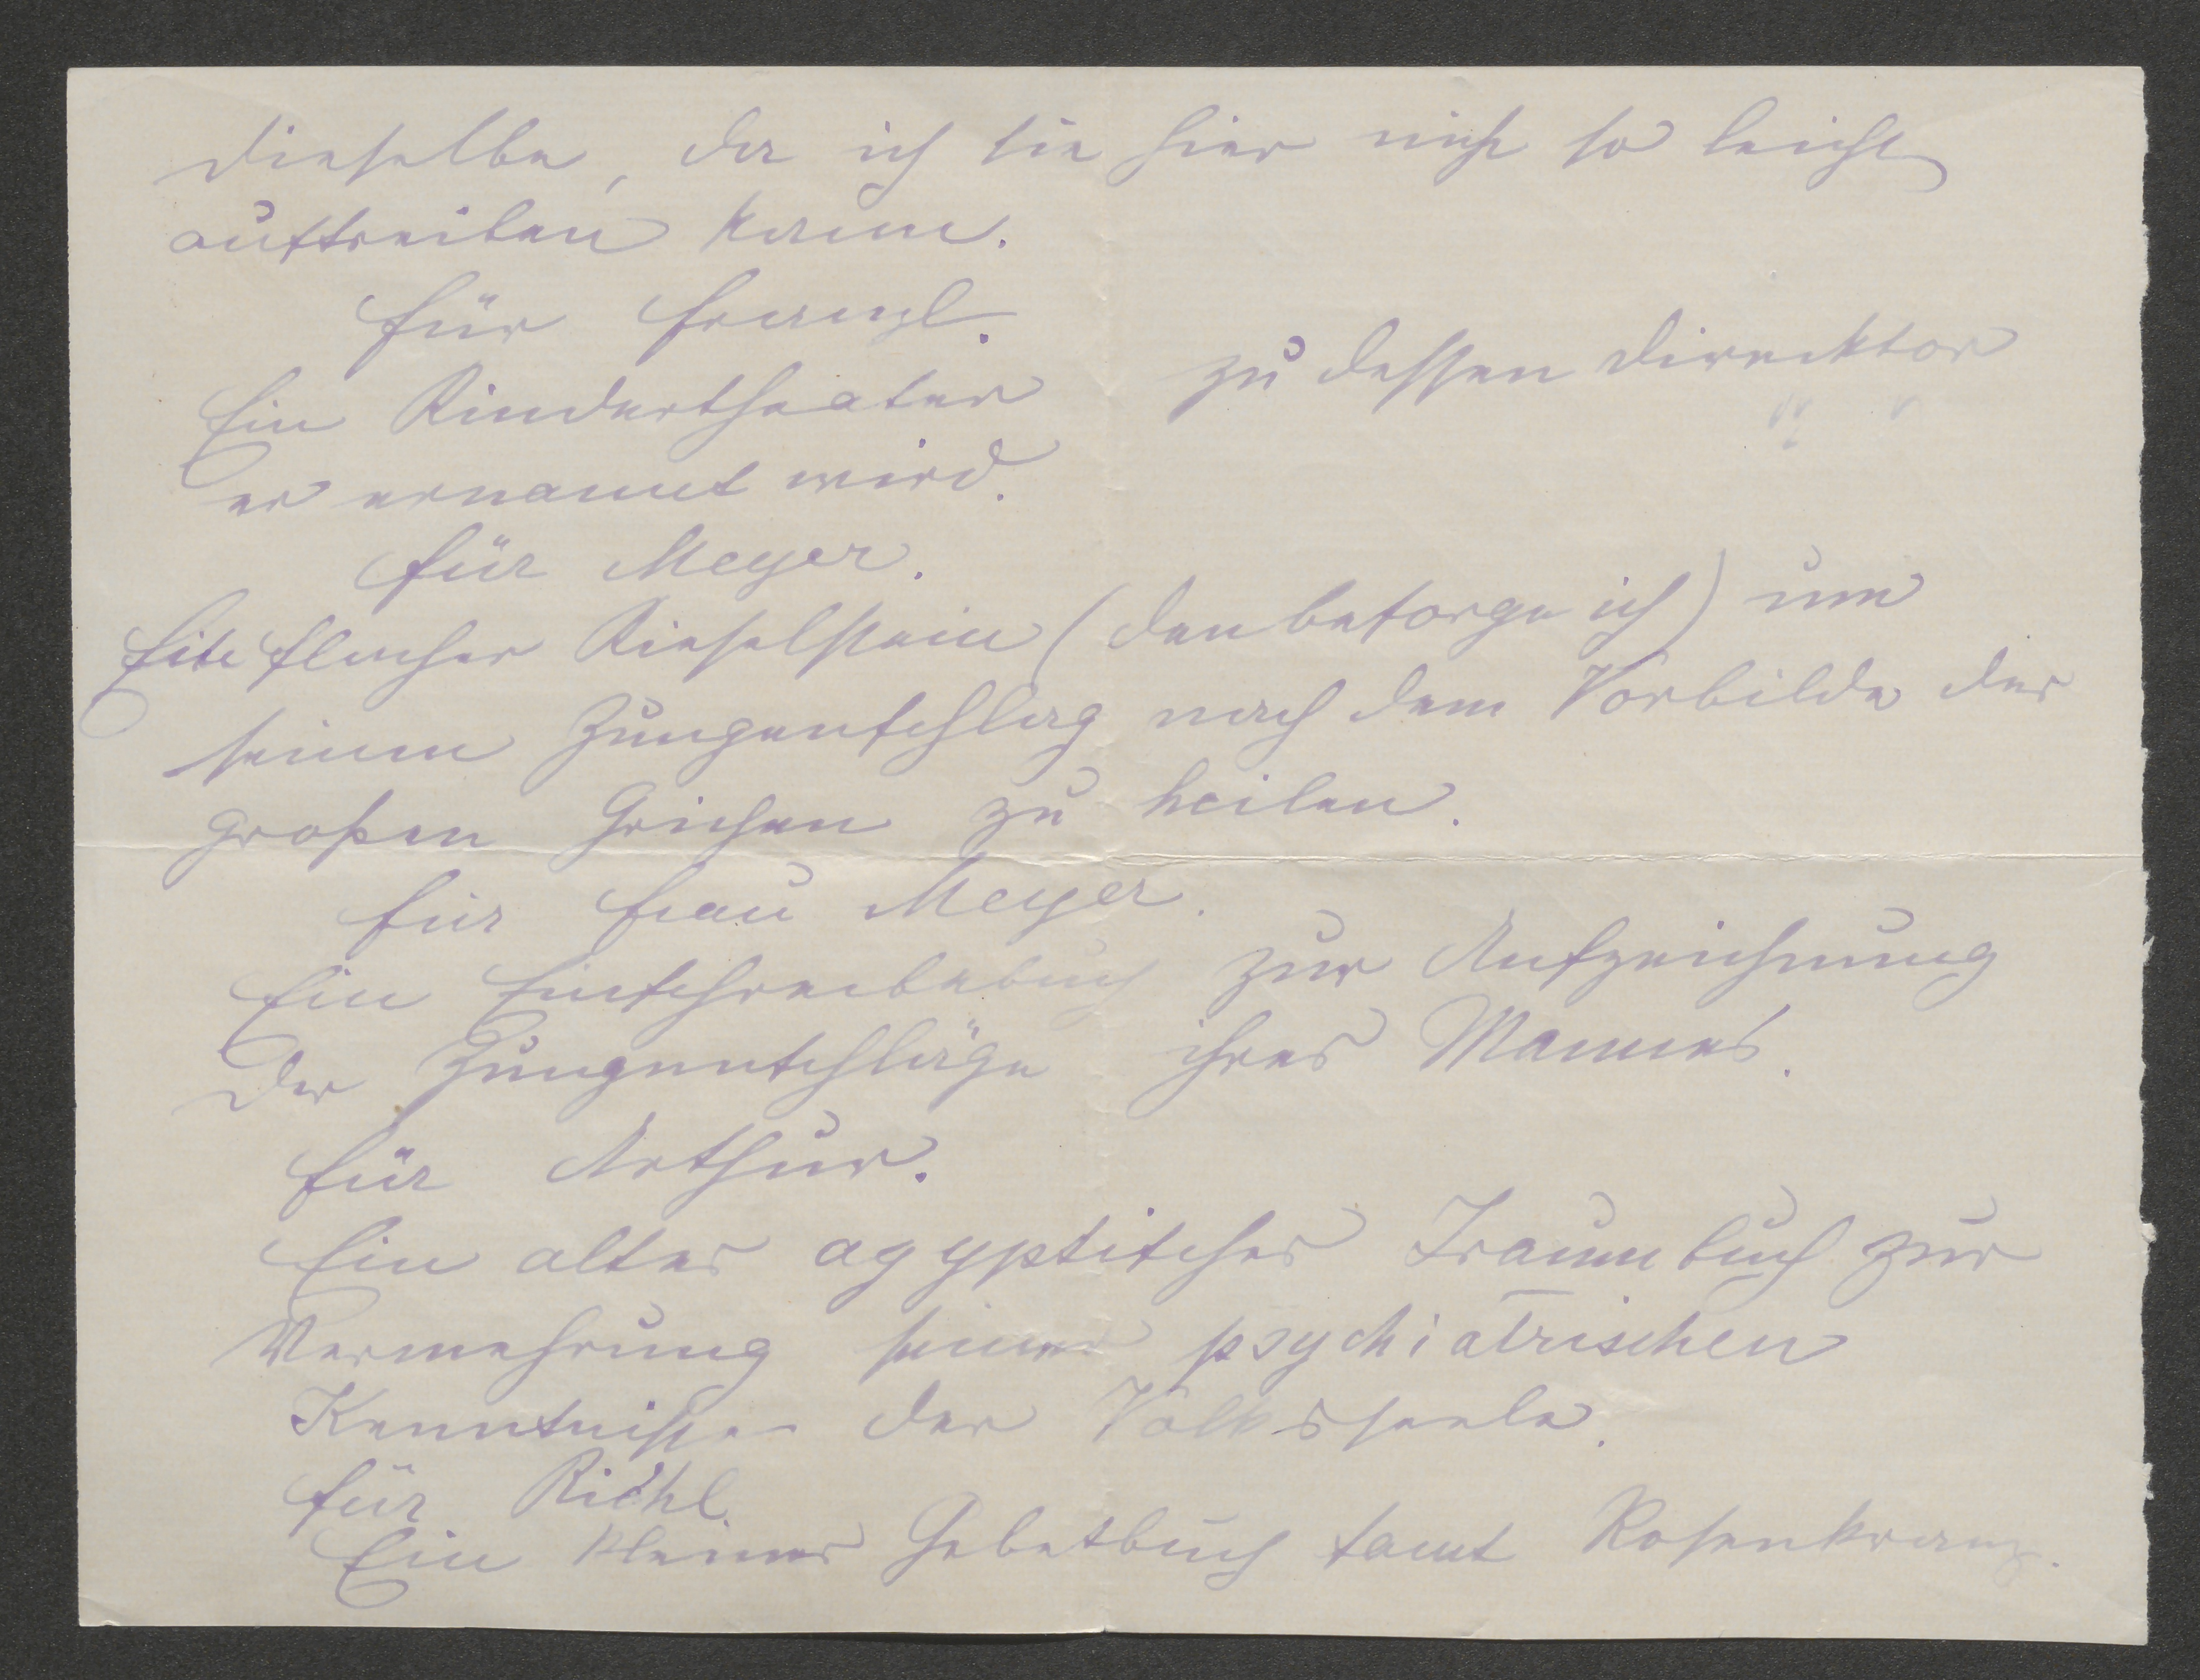 dieselbe, da ich sie hier nicht so leicht
auftreiben kann.
für Franzl.
Ein Kindertheater zu dessen Direcktor
er ernannt wird.
für Meyer.
Ein flacher Kieselstein (den besorge ich) um
seinen Zungenschlag nach dem Vorbilde der
großen Grichen zu heilen.
für Frau Meyer.
Ein Einschreibebuch zur Aufzeichnung
der Zungenschläge ihres Mannes.
für Arthur.
Ein altes agyptisches Traumbuch zur
Vermehrung seiner psychiatrischen
Kenntnisse der Volksseele.
für Richl.
Ein kleines Gebetbuch samt Rosenkranz.